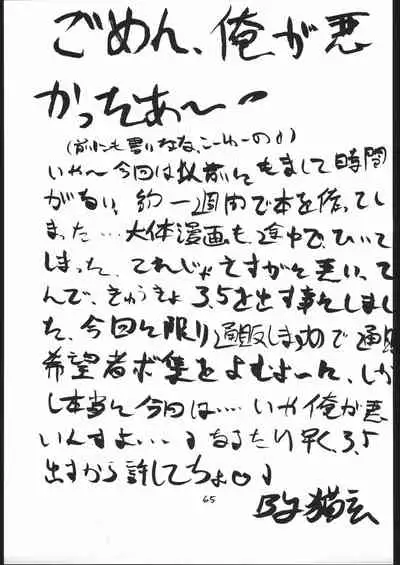 ごめん、俺が悪
かったあ〜
(前にも書いたな、こーゆーの)
いや〜今回は以前にもまして時間
がない、約一週間で本を作ってし
まった…大体漫画も途中で、ひいて
しまった、これじゃさすがに悪い、て
んで、きゅうきょ3.5を出す事にしまし
た、今回に限り通販しますので通販
希望者ボ集をよむよーに、しか
し本当に今回は…いや俺が悪
いんすよ…なるたり早く3.5
出すから許してちょ♡
65
By 猫玄